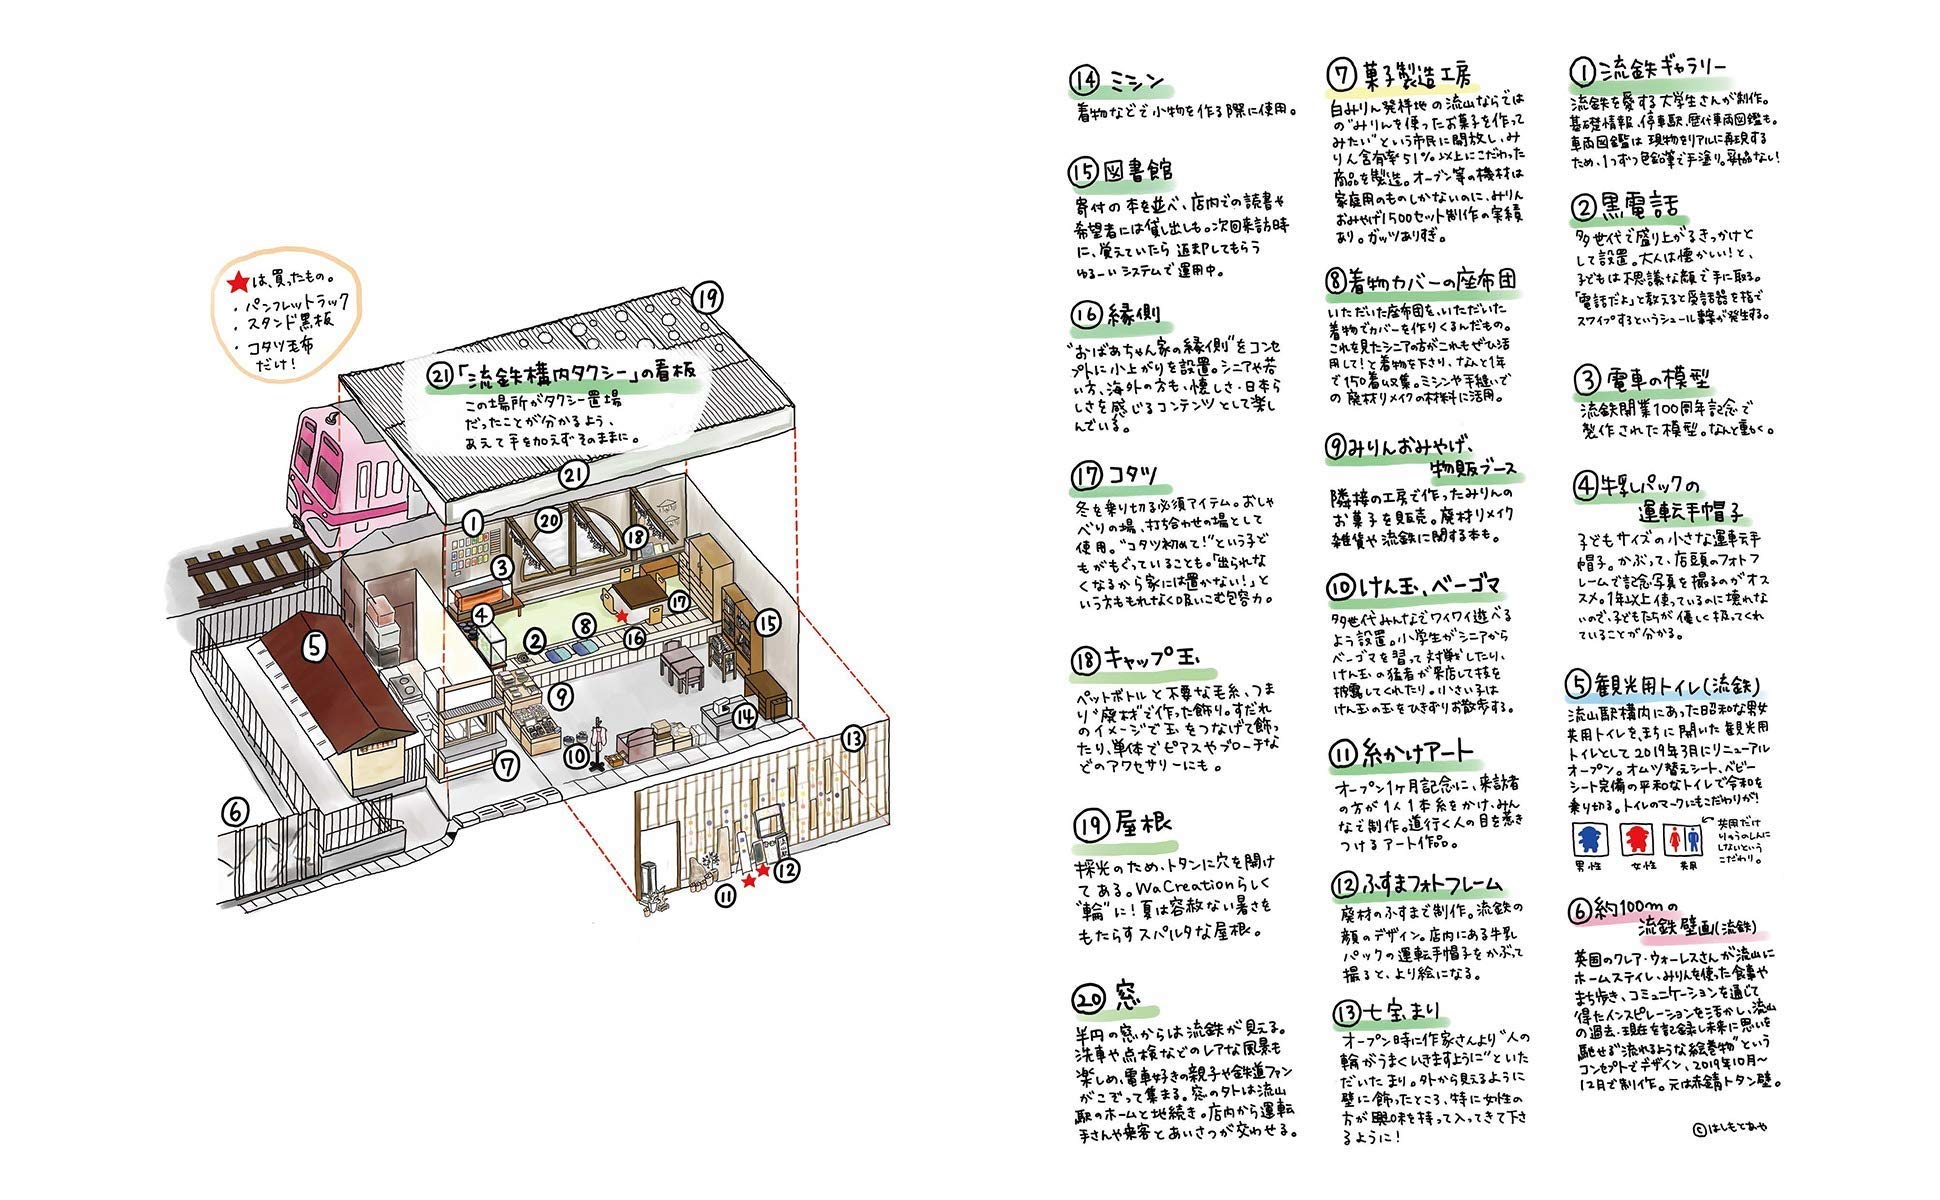 ★は、買ったもの。
・パンフレットラック
・スタンド黒板
・コタツ毛布
だけ！
㉑「流鉄構内タクシー」の看板
この場所がタクシー置場
だったことが分かるよう、
あえて手を加えずそのままに。
⑲
㉑
①
⑳
⑱
③
④
⑰
⑮
⑤
②
⑧
⑯
⑨
⑭
⑬
⑩
⑦
⑥
⑫
⑪
①流鉄ギャラリー
流鉄を愛する大学生さんが制作。
基礎情報、停車駅、歴代車両図鑑も。
車両図鑑は現物をリアルに再現する
ため、1つずつ色鉛筆で手塗り。妥協なし！
②黒電話
多世代で盛り上がるきっかけと
して設置。大人は懐かしい！と、
子どもは不思議な顔で手に取る。
「電話だよ」と教えると受話器を指で
スワイプするというシュール事案が発生する。
③電車の模型
流鉄開業100周年記念で
製作された模型。なんと動く。
④牛乳パックの
運転手帽子
子どもサイズの小さな運転手
帽子。かぶって、店頭のフォトフ
レームで記念写真を撮るのがオス
スメ。1年以上使っているのに壊れな
いので、子どもたちが優しく扱ってくれ
ていることが分かる。
⑤観光用トイレ(流鉄)
流山駅構内にあった昭和な男女
共用トイレを、まちに開いた観光用
トイレとして2019年3月にリニューアル
オープン。オムツ替えシート、ベビー
シート完備の平和なトイレで令和を
乗り切る。トイレのマークにもこだわりが！
男性
女性
共用
共用だけ
りゅうのしんに
しないという
こだわり。
⑥約100mの
流鉄壁画(流鉄)
英国のクレア・ウォーレスさんが流山に
ホームステイし、みりんを使った食事や
まち歩き、コミュニケーションを通じて
得たインスピレーションを活かし、流山
の過去・現在を記録し未来に思いを
馳せる"流れるような絵巻物"という
コンセプトでデザイン、2019年10月〜
12月で制作。元は赤錆トタン壁。
⑦菓子製造工房
白みりん発祥地の流山ならでは
の"みりんを使ったお菓子を作って
みたい"という市民に開放し、み
りん含有率51%以上にこだわった
商品を製造。オーブン等の機材は
家庭用のものしかないのに、みりん
おみやげ1500セット制作の実績
あり。ガッツありすぎ。
⑧着物カバーの座布団
いただいた座布団を、いただいた
着物でカバーを作りくるんだもの。
これを見たシニアの方がこれもぜひ活
用して！と着物を下さり、なんと1年
で150着収集。ミシンや手縫いで
の廃材リメイクの材料に活用。
⑨みりんおみやげ、
物販ブース
隣接の工房で作ったみりんの
お菓子を販売。廃材リメイク
雑貨や流鉄に関する本も。
⑩けん玉、ベーゴマ
多世代みんなでワイワイ遊べる
よう設置。小学生がシニアから
ベーゴマを習って対戦したり、
けん玉の猛者が来店して技を
披露してくれたり。小さい子は
けん玉の玉をひきずりお散歩する。
⑪糸かけアート
オープン1ヶ月記念に、来訪者
の方が1人1本糸をかけ、みん
なで制作。道行く人の目を惹き
つけるアート作品。
⑫ふすまフォトフレーム
廃材のふすまで制作。流鉄の
顔のデザイン。店内にある牛乳
パックの運転手帽子をかぶって
撮ると、より絵になる。
⑬七宝まり
オープン時に作家さんより"人の
輪がうまくいきますように"といた
だいたまり。外から見えるように
壁に飾ったところ、特に女性の
方が興味を持って入ってきて下さ
るように！
⑭ミシン
着物などで小物を作る際に使用。
⑮図書館
寄付の本を並べ、店内での読書や
希望者には貸し出しも。次回来訪時
に、覚えていたら返却してもらう
ゆるーいシステムで運用中。
⑯縁側
"おばあちゃん家の縁側"をコンセ
プトに小上がりを設置。シニアや若
い方、海外の方も、懐しさ・日本ら
しさを感じるコンテンツとして楽し
んでいる。
⑰コタツ
冬を乗り切る必須アイテム。おしゃ
べりの場、打ち合わせの場として
使用。"コタツ初めて！"という子ど
もがもぐっていることも。「出られな
くなるから家には置かない！」と
いう方ももれなく吸いこむ包容力。
⑱キャップ玉
ペットボトルと不要な毛糸、つま
り"廃材"で作った飾り。すだれ
のイメージで玉をつなげて飾っ
たり、単体でピアスやブローチな
どのアクセサリーにも。
⑲屋根
採光のため、トタンに穴を開け
てある。WaCreationらしく
"輪"に！夏は容赦ない暑さを
もたらすスパルタな屋根。
⑳窓
半円の窓からは流鉄が見える。
洗車や点検などのレアな風景も
楽しめ、電車好きの親子や鉄道ファン
がこぞって集まる。窓の外は流山
駅のホームと地続き。店内から運転
手さんや乗客とあいさつが交わせる。
©はしもとあや